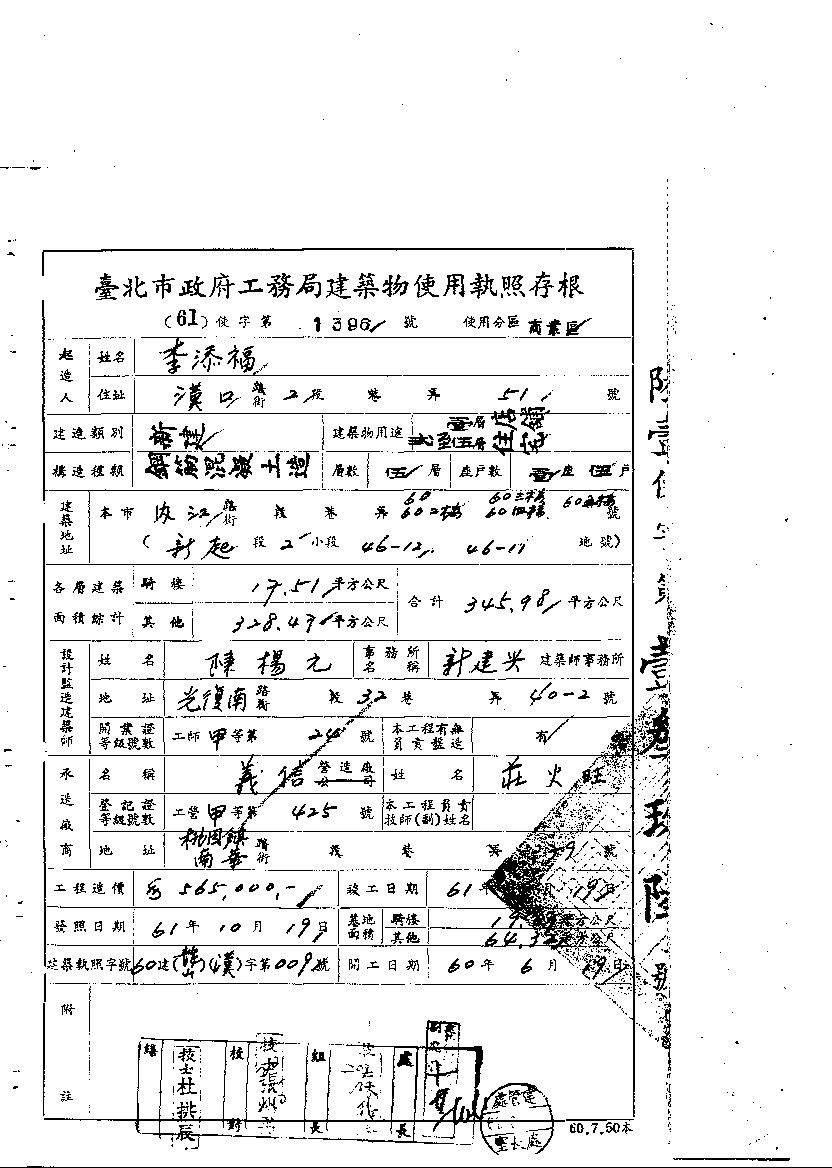 臺北市政府工務局建築物使用執照存根
(61)使字第 1396 號 使用分區 商業區
起造人 姓名 李添福
住址 漢口 路街 2段 巷 弄 51 號
建造類別 新建 建築物用途 壹層店舖 貳至伍層住宅
構造種類 鋼筋混凝土造 層數 伍層 座戶數 壹座 伍戶
建築地址 本市 內江 路街 段 巷 弄 60 60二樓 60三樓 60四樓 60五樓 號
(新起 段 2 小段 46-12, 46-11 地號)
各層建築面積綜計 騎樓 17.51 平方公尺 合計 345.98 平方公尺
其他 328.47 平方公尺
設計監造建築師 姓名 陳楊元 事務所名稱 新建興 建築師事務所
地址 光復南 路街 段 32 巷 弄 40-2 號
開業證等級號數 工師 甲 等第 24 號 本工程有無負責監造 有
承造廠商 名稱 義信 營造廠公司 姓名 莊火旺
登記證等級號數 工營 甲 等第 425 號 本工程負責技師(副)姓名
地址 桃園鎮南華 路街 段 巷 弄 號
工程造價 565,000,- 竣工日期 61年 月 19日
發照日期 61年 10月 19日 基地面積 騎樓 平方公尺
其他 64.32 平方公尺
建築執照字號 60建( )(漢)字第009號 開工日期 60年 6月 19日
附註
繕 技士杜挑辰 校對 組長 處長
60.7.50本